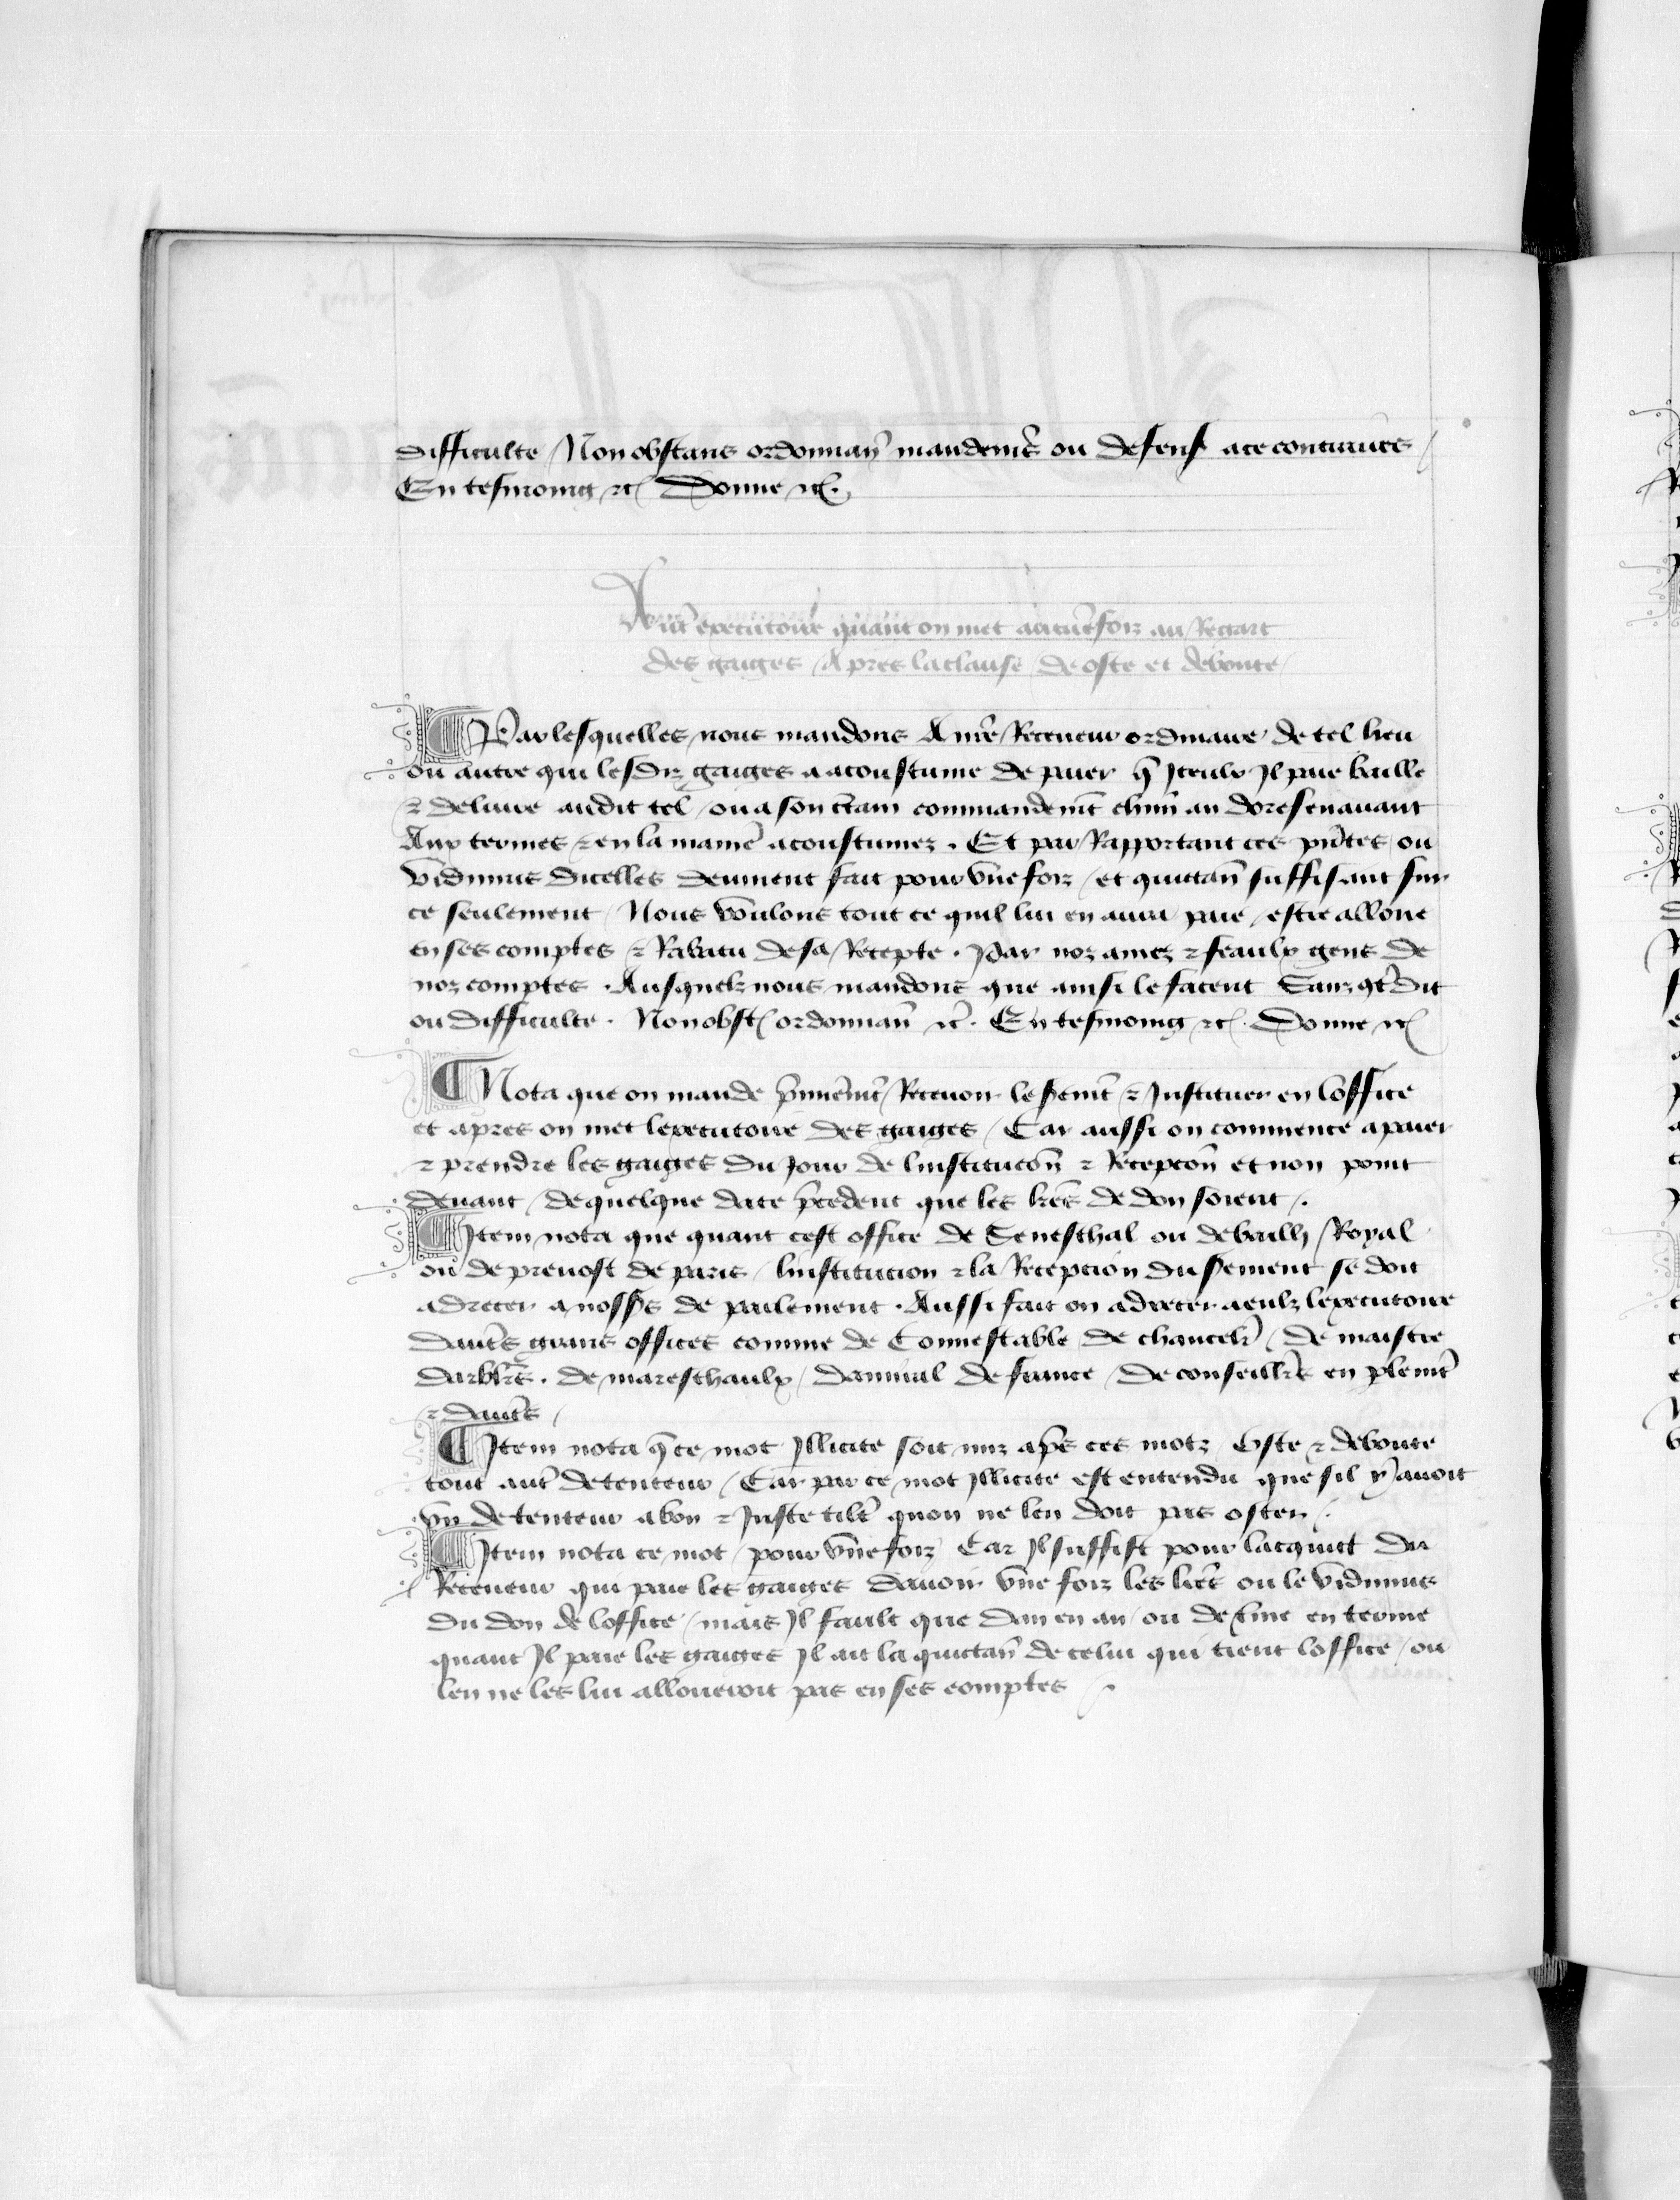 difficulte / Non obstans ordonnan̄ mandem̄s ou defens̄ a ce contraires /
En tesmoing ⁊c̄ Donne ⁊c̄.
Aut̄ executoire quant on met aucunefoiz au Regart
des gaiges / Apres la clause / de oste et deboute /
¶ Par lesquelles nous mandons A nr̄e Receueur ordinaire de tel lieu
ou autre qui lesdiz gaiges a acoustume de paier q̄ Iceulx Il paie baille
⁊ deliure audit tel / ou a son c̄tain commandem̄t chūn an doresenauant
Aux termes ⁊ en la manie᷑ acoustumez . Et par Rapportant ces pn̄tes / ou
vidimus dicelles deuement fait pour vne foiz / et quictan̄ suffisant sur
ce seulement / Nous voulons tout ce quil lui en aura paie / estre alloue
en ses comptes ⁊ Rabatu de sa Recepte . Par noz amez ⁊ feaulx gens de
noz comptes . Ausquelz nous mandons que ainsi le facent Sanz 9t̄dit
ou difficulte . Nonobst̄ ordonnan̄ ⁊c̄ . En tesmoing ⁊c̄ . Donne ⁊c̄
¶ Nota que on mande p̄mierem̄t / Receuoir le serm̄t ⁊ Instituer en loffice
et apres on met lexecutoire des gaiges / Car aussi on commence a paier
⁊ prendre les gaiges du Jour de linstitucōn ⁊ Recepcōn et non point
deuant / de quelque date p̄cedent que les lr̄es de don soient / .
¶ Item nota que quant cest office de Seneschal ou de bailli / Royal
ou de preuost de paris / linstitucion ⁊ la Recepcion du serment se doit
adrecer a noss̄s de parlement . Aussi fait on adrecer a eulz lexecutoire
daut̄s grans offices comme de Connestable / de chancelr̄ / de maistre
darbl̄rs . de mareschaulx / damiral de france / de conseill̄rs en plem̄t
⁊ daut̄s /
¶ Item nota q̄ ce mot Illicite soit mis ap̄s ces motz / Oste ⁊ deboute
tout aut̄ detenteur / Car par ce mot Illicite est entendu que sil y auoit
vn detenteur a bon ⁊ Juste tilt̄ quon ne len doit pas oster / .
¶ Item nota ce mot / pour vne foiz Car Il suffist pour lacquict du
Receueur qui paie les gaiges dauoir vne foiz les lr̄es ou le vidimus
du don de loffice / mais Il fault que dan en an / ou de t̄me en terme
quant Il paie les gaiges Il ait la quictan̄ de celui qui tient loffice / ou
len ne les lui alloueroit pas en ses comptes / .